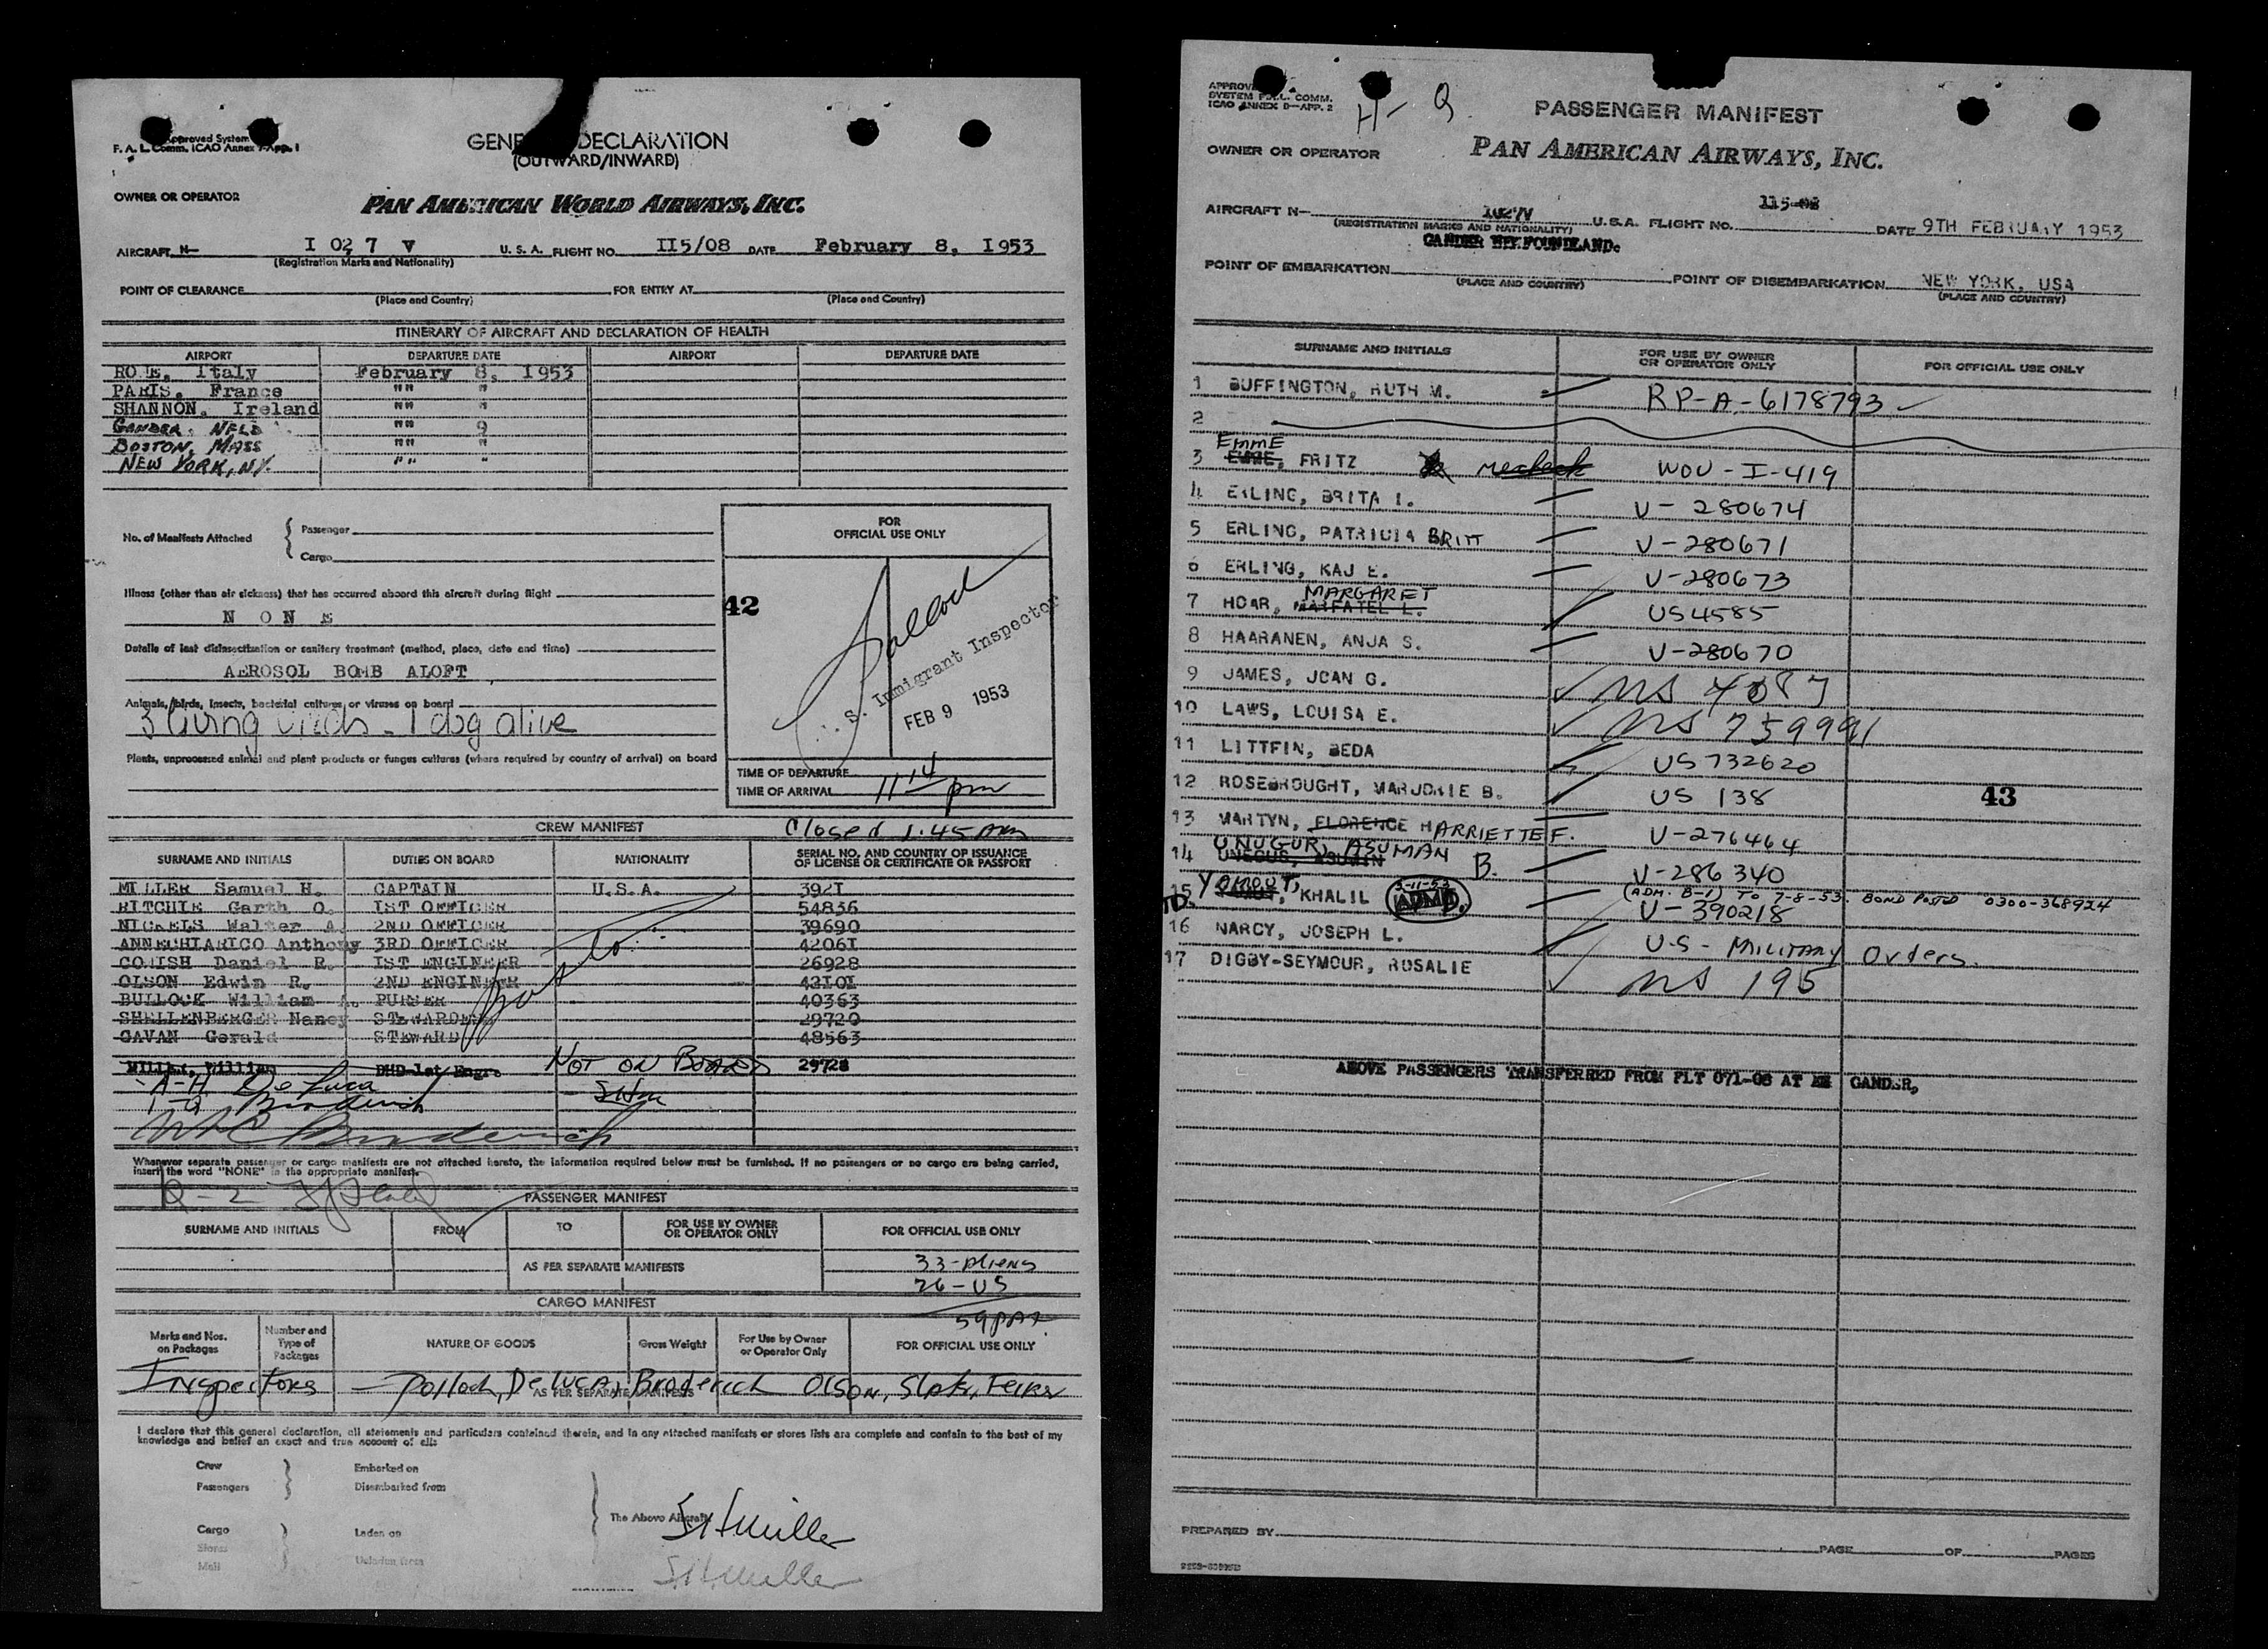 Approved System
F. A. L. Comm. ICAO Annex 9-App. 1
GENE DECLARATION
(OUTWARD/INWARD)
OWNER OR OPERATOR
PAN AMERICAN WORLD AIRWAYS, INC.
AIRCRAFT N- I 02 7 V U. S. A. FLIGHT NO. II5/08 DATE February 8, I953
(Registration Marks and Nationality)
POINT OF CLEARANCE FOR ENTRY AT
(Place and Country) (Place and Country)
ITINERARY OF AIRCRAFT AND DECLARATION OF HEALTH
AIRPORT DEPARTURE DATE AIRPORT DEPARTURE DATE
ROME, Italy February 8, I953
PARIS, France "" "
SHANNON, Ireland "" "
GANDER, NFLD "" 9
BOSTON, MASS "" "
NEW YORK, NY. "" "
No. of Manifests Attached { Passenger
Cargo
FOR
OFFICIAL USE ONLY
42
Pollock
U. S. Immigrant Inspector
FEB 9 1953
Illness (other than air sickness) that has occurred aboard this aircraft during flight
N O N E
Details of last disinsectization or sanitary treatment (method, place, date and time)
AEROSOL BOMB ALOFT
Animals, birds, insects, bacterial cultures or viruses on board
3 living birds - 1 dog alive
Plants, unprocessed animal and plant products or fungus cultures (where required by country of arrival) on board
TIME OF DEPARTURE
TIME OF ARRIVAL 11 14 pm
CREW MANIFEST Closed 1.45 AM
SURNAME AND INITIALS DUTIES ON BOARD NATIONALITY SERIAL NO. AND COUNTRY OF ISSUANCE
OF LICENSE OR CERTIFICATE OR PASSPORT
MILLER Samuel H. CAPTAIN U.S.A. 392I
RITCHIE Garth O. IST OFFICER 54836
NICKELS Walter A. 2ND OFFICER 39690
ANNECHIARICO Anthony 3RD OFFICER 4206I
CORISH Daniel R. IST ENGINEER 26928
OLSON Edwin R. 2ND ENGINEER 42I0I
BULLOCK William A. PURSER 40363
SHELLENBERGER Nancy STEWARDESS 29720
GAVAN Gerald STEWARD 48563
MILLER, William DHD-1st Engr. NOT ON BOARD 29728
A-H De Luca SHM
I-Q Broderick
Broderick
Whenever separate passenger or cargo manifests are not attached hereto, the information required below must be furnished. If no passengers or no cargo are being carried,
insert the word "NONE" in the appropriate manifest.
R-2
PASSENGER MANIFEST
SURNAME AND INITIALS FROM TO FOR USE BY OWNER
OR OPERATOR ONLY FOR OFFICIAL USE ONLY
AS PER SEPARATE MANIFESTS 33-Aliens
26-US
CARGO MANIFEST
59 PAX
Marks and Nos.
on Packages Number and
Type of
Packages NATURE OF GOODS Gross Weight For Use by Owner
or Operator Only FOR OFFICIAL USE ONLY
Inspectors - Pollock, De Luca, Broderick Olson,
AS PER SEPARATE MANIFESTS
I declare that this general declaration, all statements and particulars contained therein, and in any attached manifests or stores lists are complete and contain to the best of my
knowledge and belief an exact and true account of all:
Crew } Embarked on
Passengers Disembarked from
The Above Aircraft SHMiller
Cargo } Laden on
Stores
Mail Unladen from
S.H.Miller
APPROVED
SYSTEM F.A.L. COMM.
ICAO ANNEX 9-APP. 2
H- Q
PASSENGER MANIFEST
OWNER OR OPERATOR PAN AMERICAN AIRWAYS, INC.
AIRCRAFT N- 1027V U.S.A. FLIGHT NO. 115-08 DATE 9TH FEBRUARY 1953
(REGISTRATION MARKS AND NATIONALITY)
GANDER NEWFOUNDLAND.
POINT OF EMBARKATION POINT OF DISEMBARKATION NEW YORK, USA
(PLACE AND COUNTRY) (PLACE AND COUNTRY)
SURNAME AND INITIALS FOR USE BY OWNER
OR OPERATOR ONLY FOR OFFICIAL USE ONLY
1 BUFFINGTON, RUTH M. RP-A-6178793
2
EMME
3 EMME, FRITZ recheck WOU-I-419
4 ERLING, BRITA I. V-280674
5 ERLING, PATRICIA BRITT V-280671
6 ERLING, KAJ E. V-280673
MARGARET
7 HOAR, MARFATEL L. US4585
8 HAARANEN, ANJA S. V-280670
9 JAMES, JOAN G. NS 4087
10 LAWS, LOUISA E. NS 759991
11 LITTFIN, BEDA US732620
12 ROSEBROUGHT, MARJORIE B. US 138
43
13 MARTYN, FLORENCE HARRIETTE F. V-276464
UNUGUR, ASUMAN
14 B. V-286340
YAMOUT,
15 KHALIL 3-11-53 ADMD. (ADM. B-1) TO 7-8-53. BOND POSTED 0300-368924
TD. V-390218
16 NARCY, JOSEPH L. U.S- MILITARY Orders.
17 DIGBY-SEYMOUR, ROSALIE NS 195
ABOVE PASSENGERS TRANSFERRED FROM FLT 071-08 AT GANDER,
PREPARED BY
PAGE OF PAGES